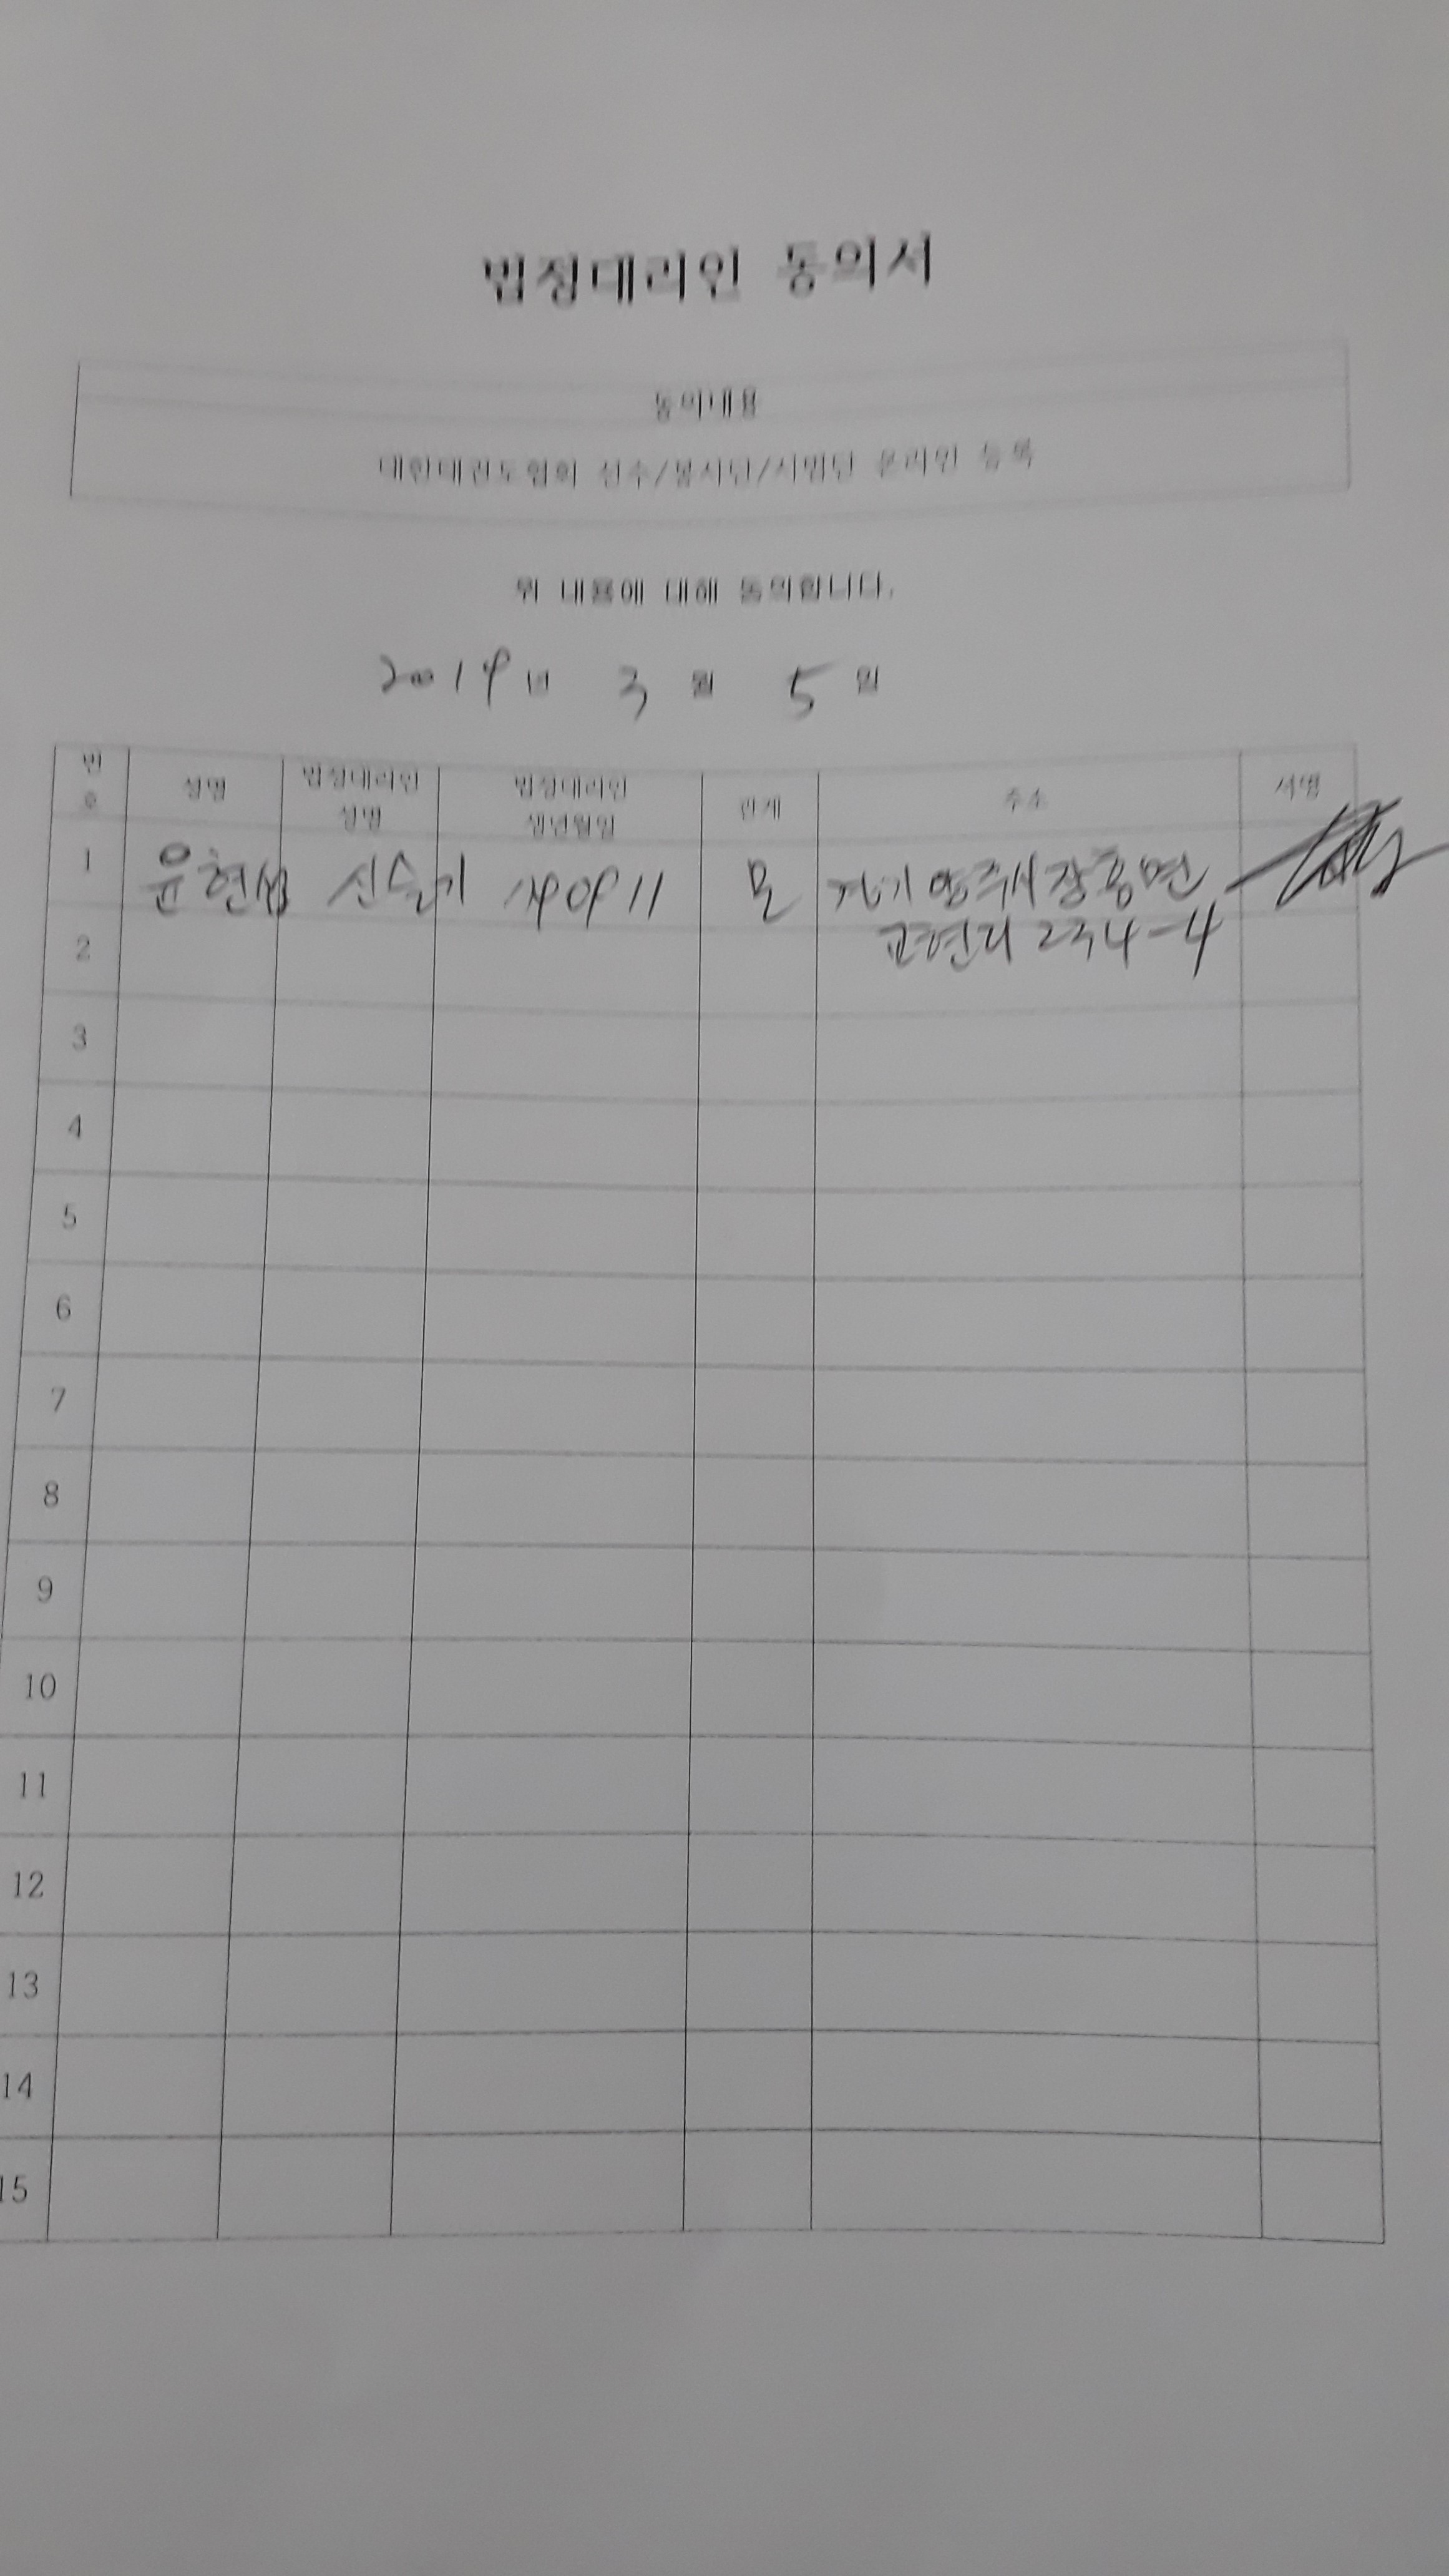 법정대리인 동의서
동의내용
대한태권도협회 선수/봉사단/시범단 온라인 등록
위 내용에 대해 동의합니다.
2019년 3월 5일
번호 성명 법정대리인 성명 법정대리인 생년월일 관계 주소 서명
1 윤현섭 신슬기 모 경기 양주시 장흥면
교현리 234-4
2
3
4
5
6
7
8
9
10
11
12
13
14
15